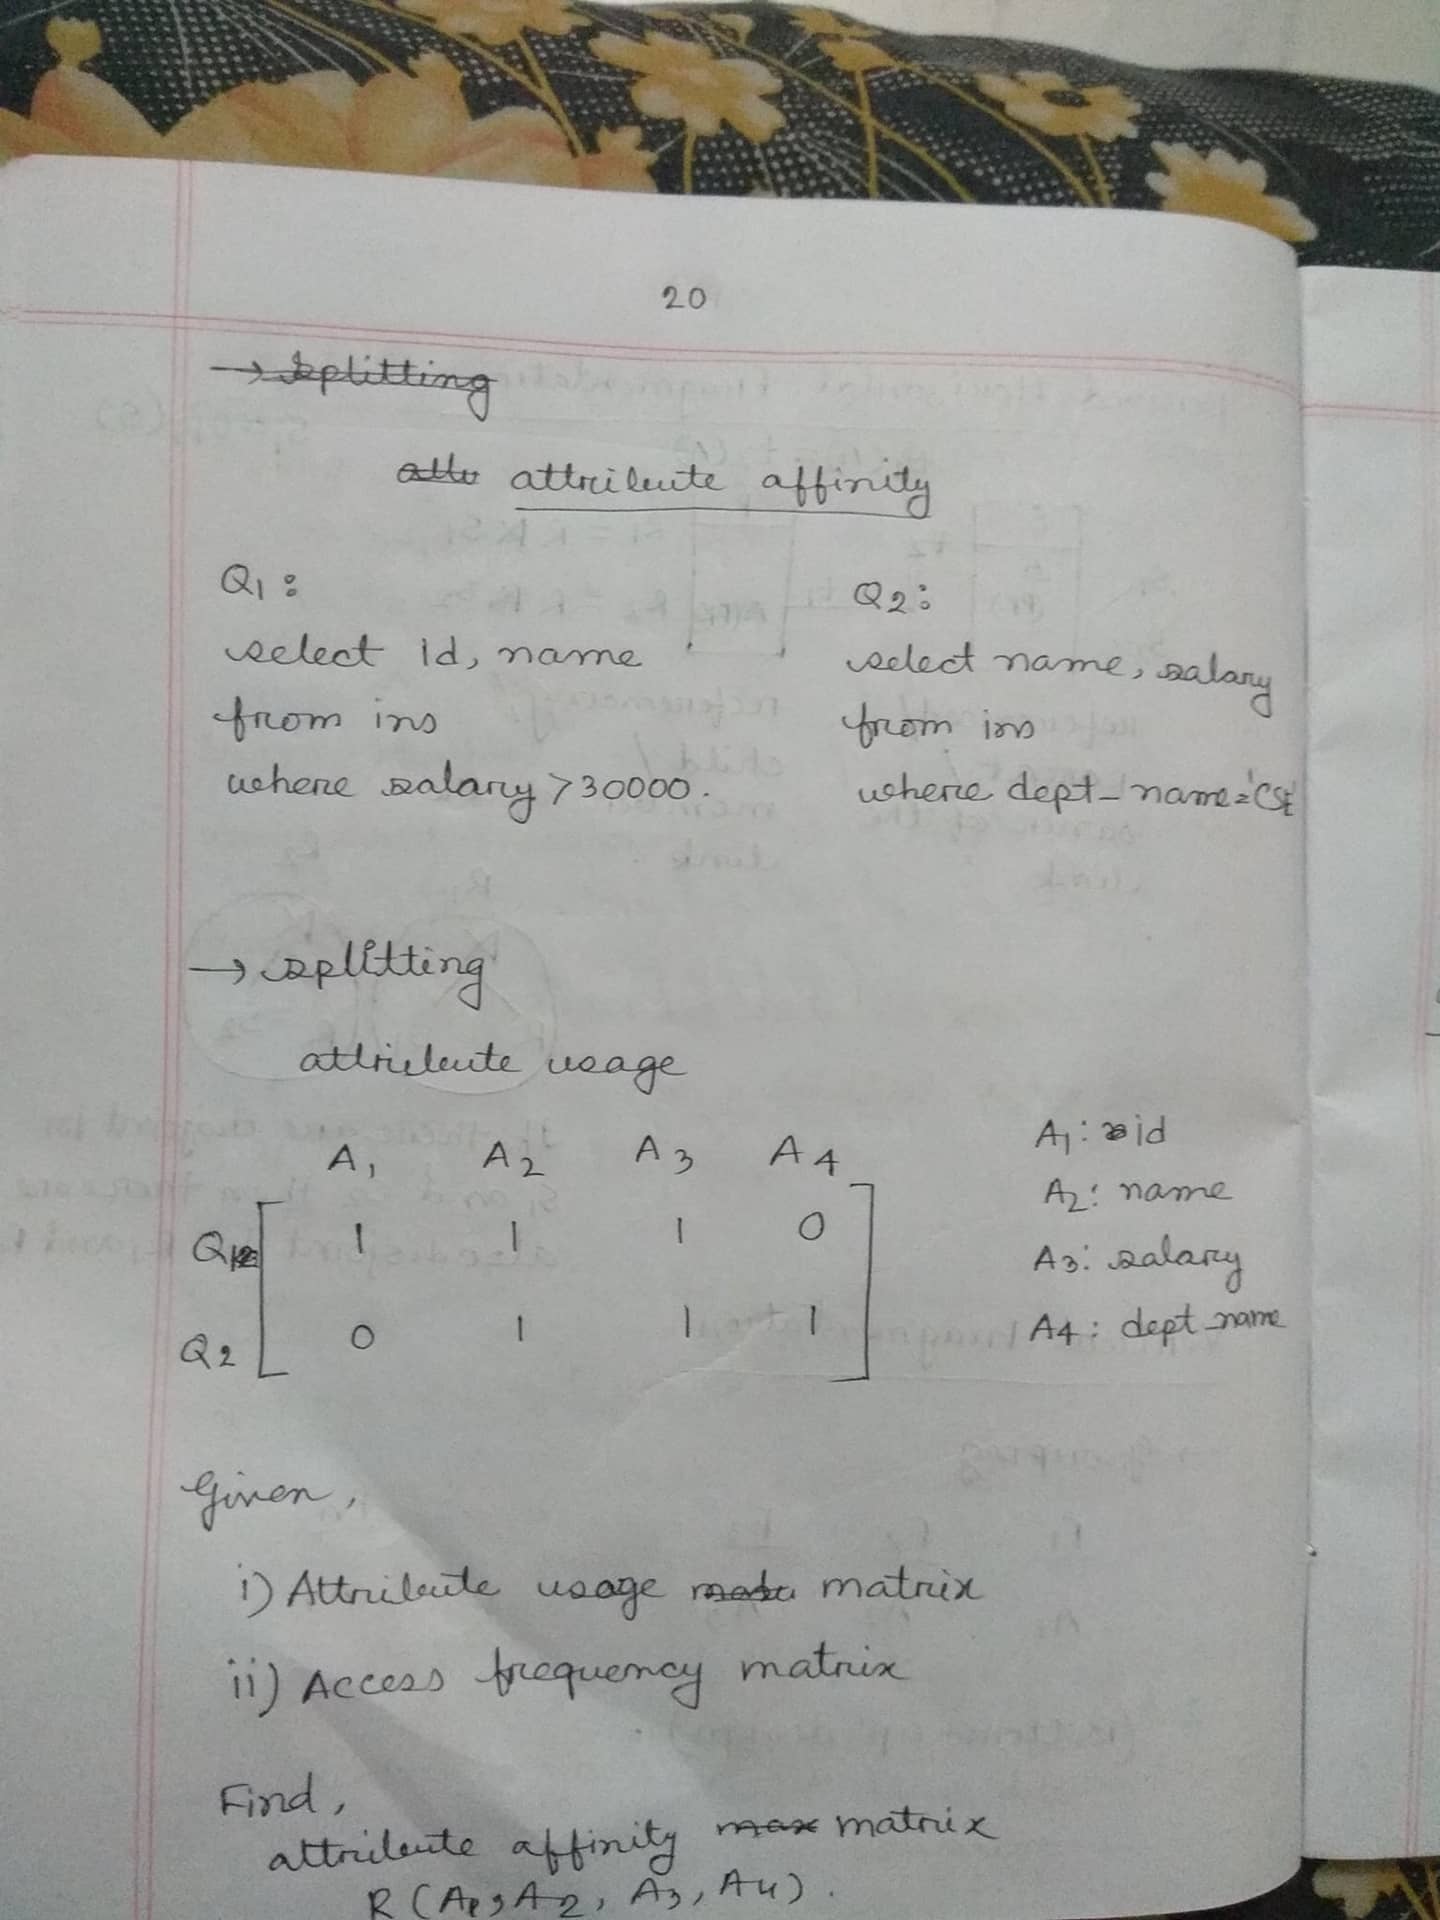 20
→ splitting
attribute affinity
Q1:
select id, name
from ins
where salary > 30000.
Q2:
select name, salary
from ins
where dept_name='CSE'
→ splitting
attribute usage
A1 A2 A3 A4
Q1 1 1 1 0
Q2 0 1 1 1
A1: id
A2: name
A3: salary
A4: dept_name
Given,
i) Attribute usage matrix
ii) Access frequency matrix
Find,
attribute affinity matrix
R (A1, A2, A3, A4).